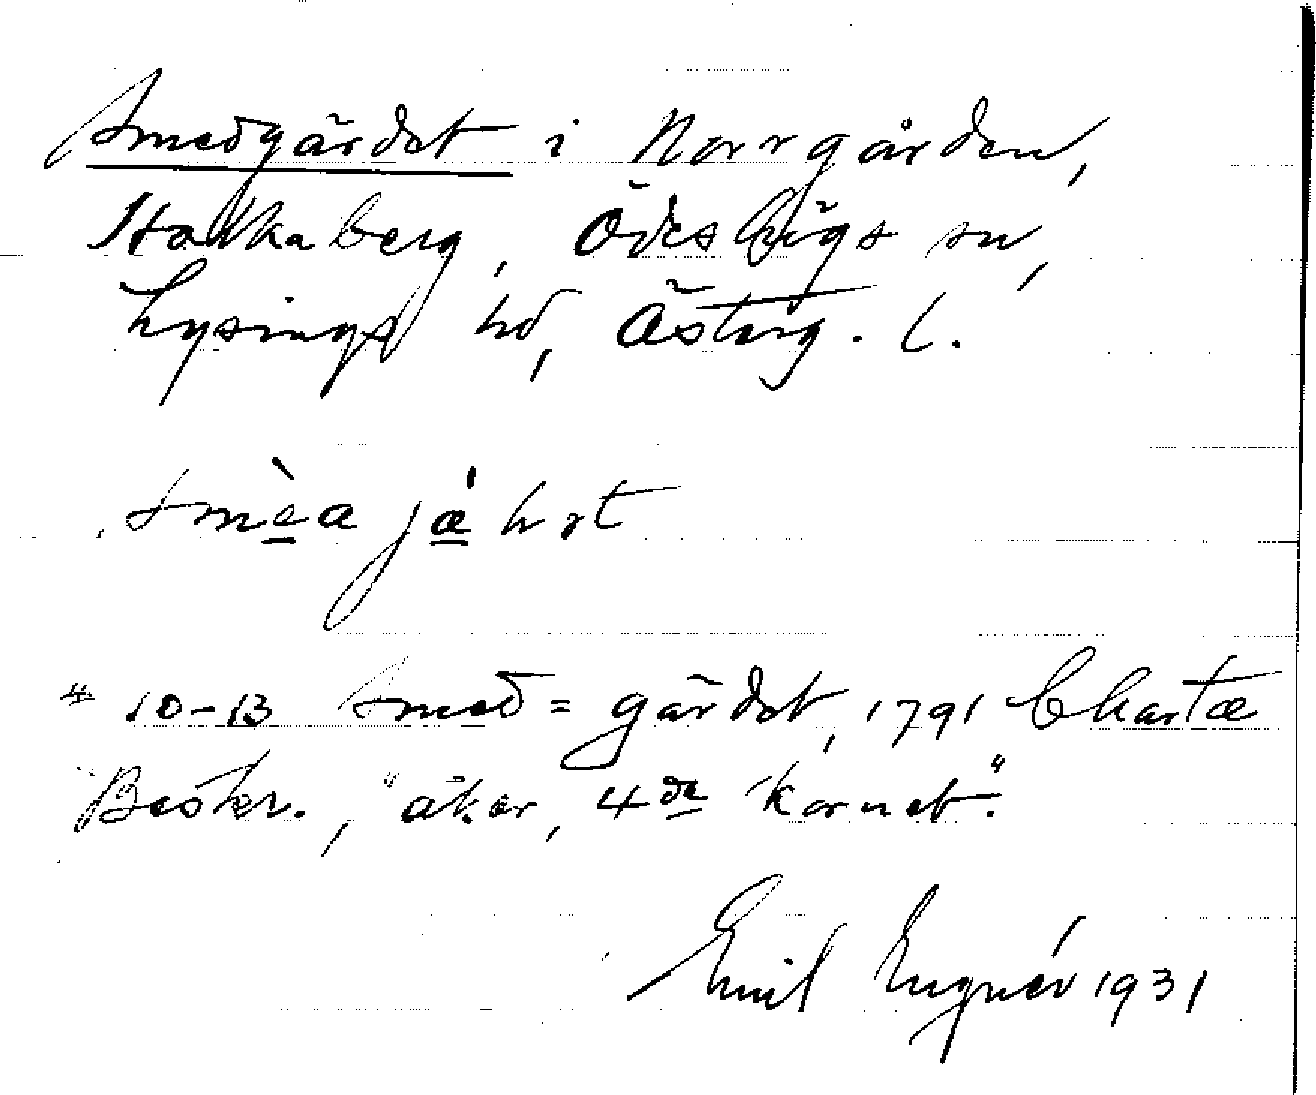 Smedgärdet i Norrgården,
Holkaberg, Ödeshögs sn,
Lysings hd, Östrg. l.
smèa jæ̀ hrt
" 10-13 Smed= gärdet, 1791 Charta
Beskr., "åker, 4de kornet."
Emil Engnér 1931